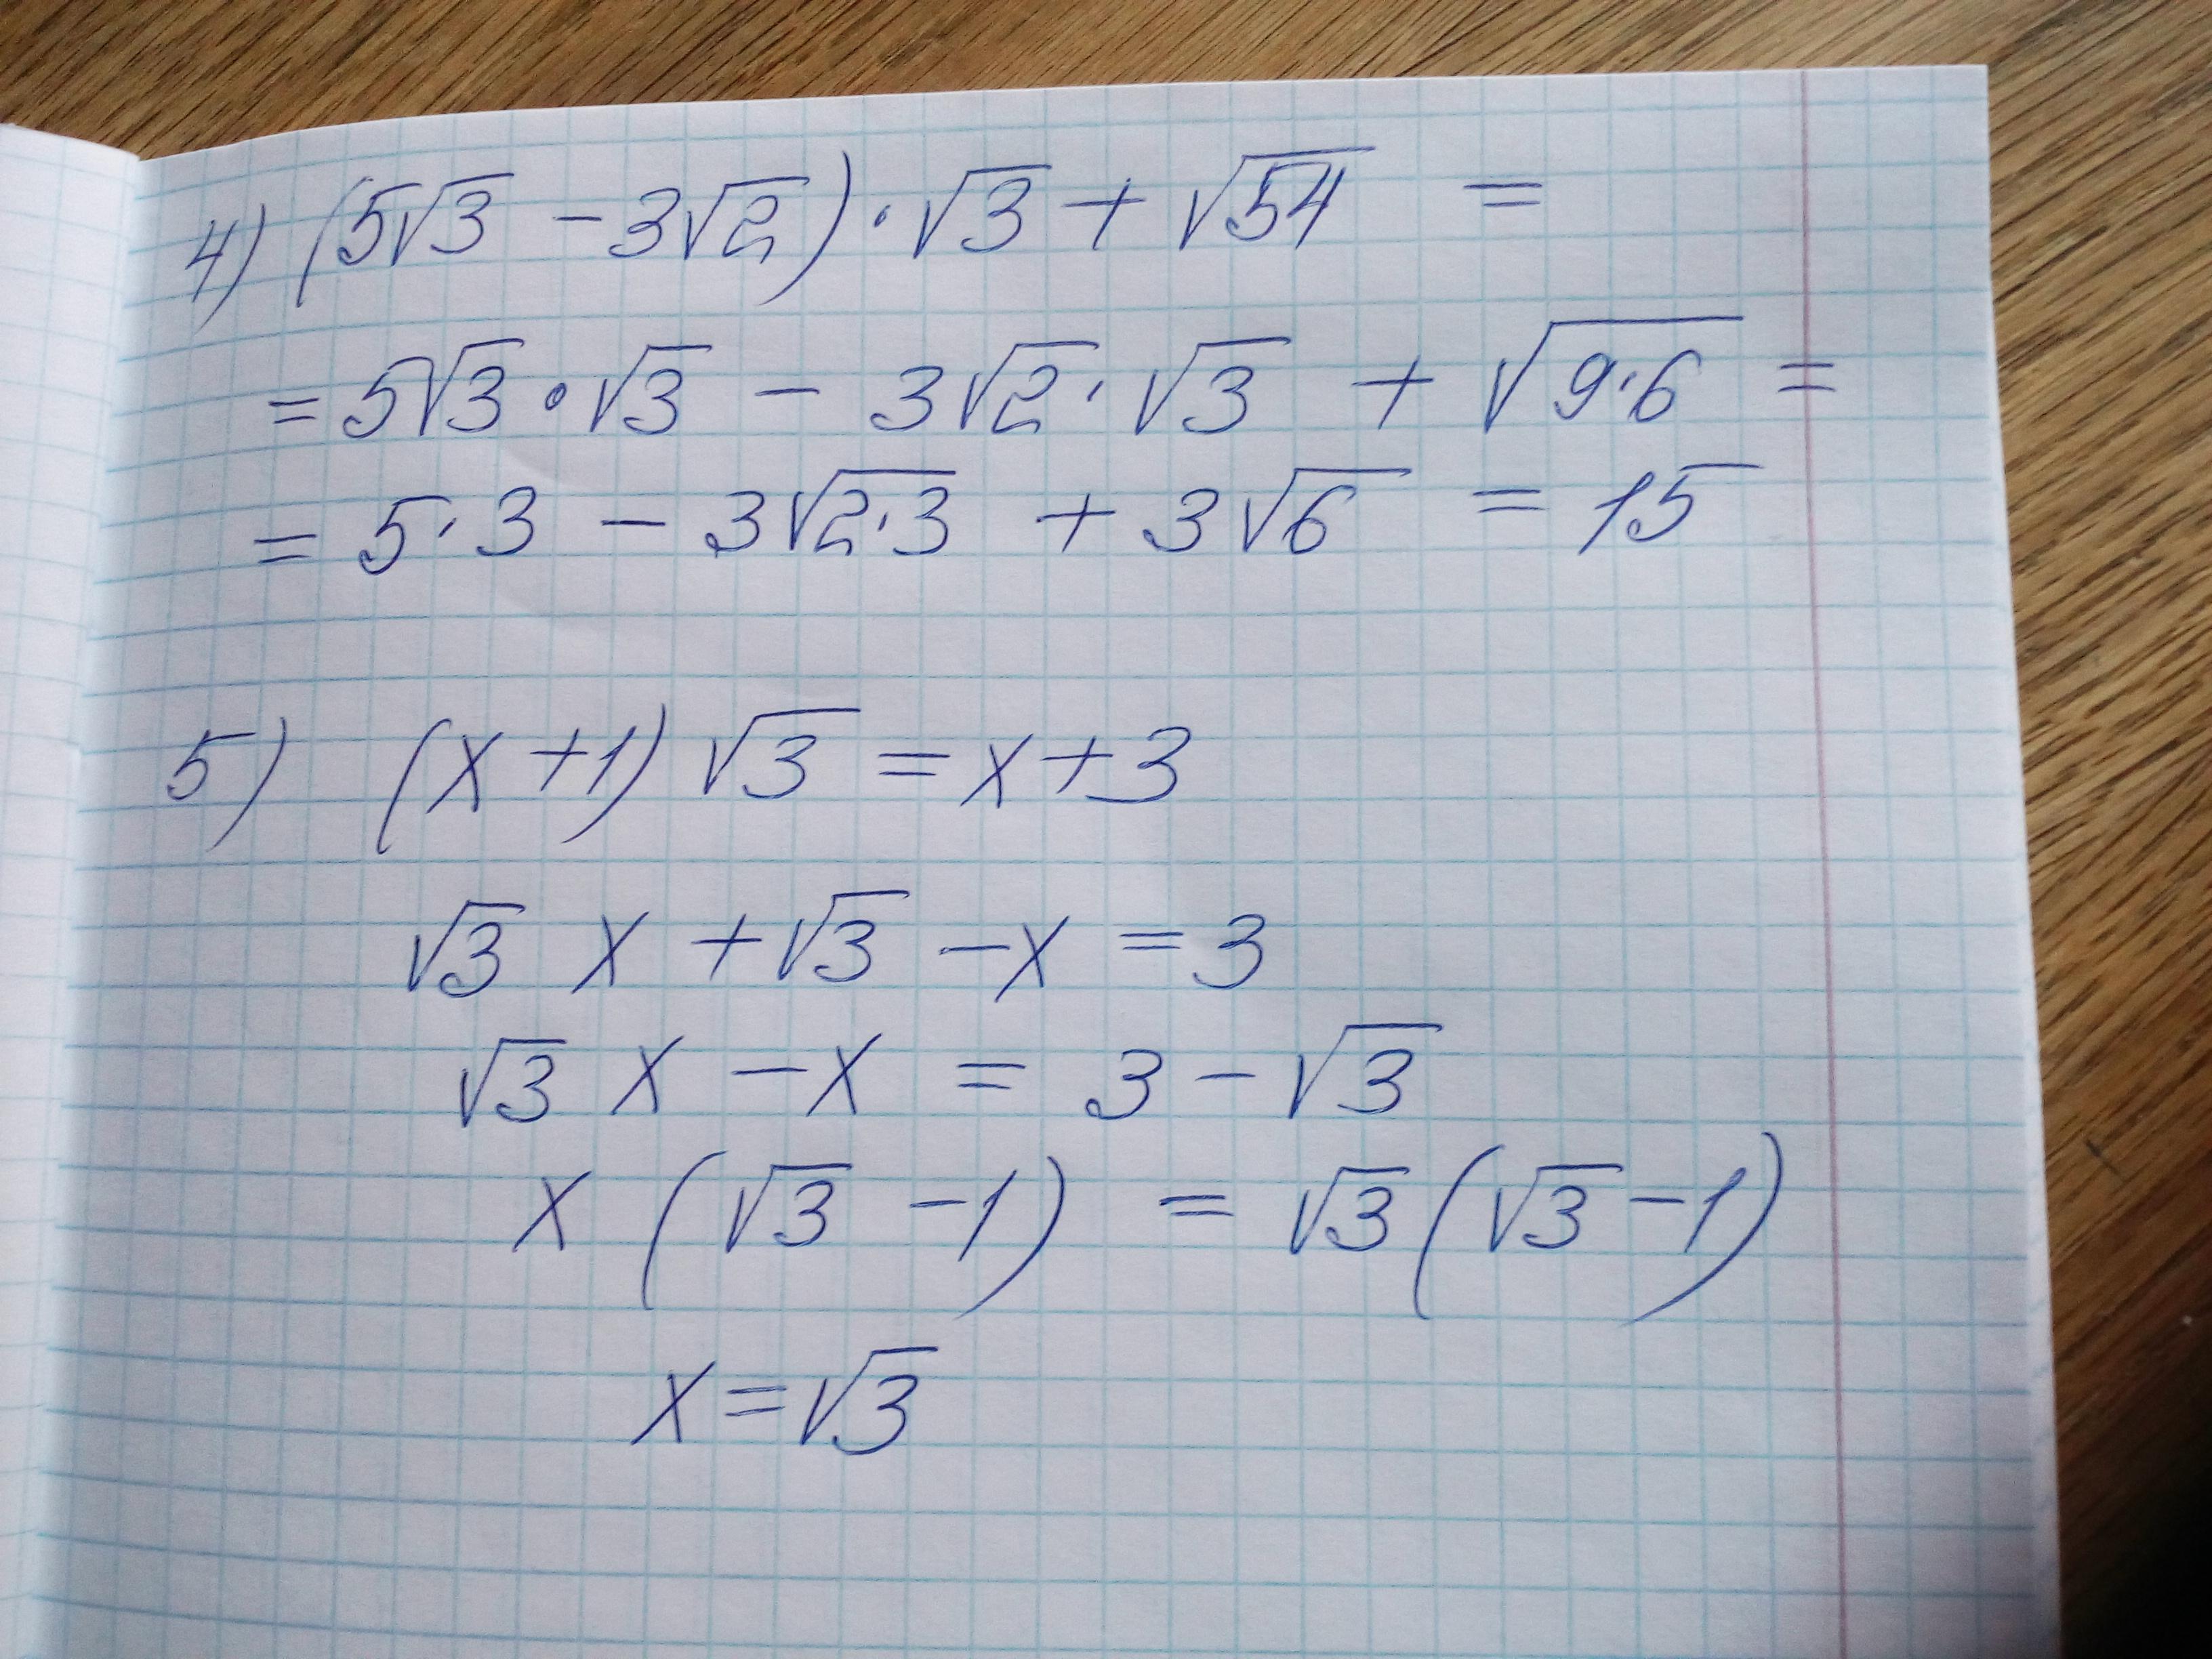 4) (5√3 - 3√2) · √3 + √54 =
= 5√3 · √3 - 3√2 · √3 + √9·6 =
= 5·3 - 3√2·3 + 3√6 = 15
5) (x+1) √3 = x+3
√3 x + √3 - x = 3
√3 x - x = 3 - √3
x (√3 - 1) = √3 (√3 - 1)
x = √3